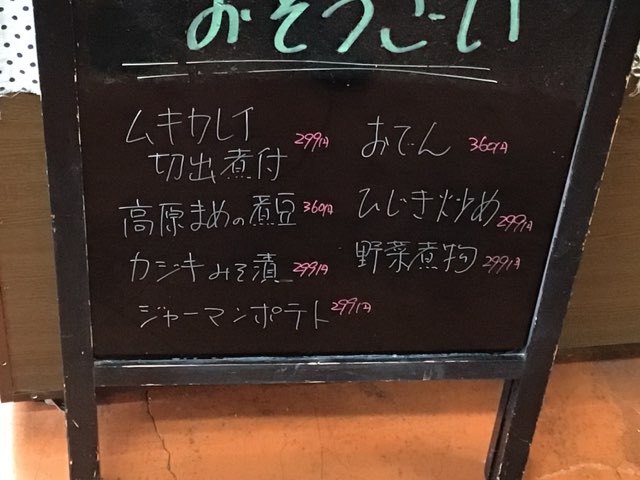 おそうざい
ムキカレイ
切出煮付 299円
高原まめの煮豆 360円
カジキみそ漬 299円
ジャーマンポテト 299円
おでん 360円
ひじき炒め 299円
野菜煮物 299円